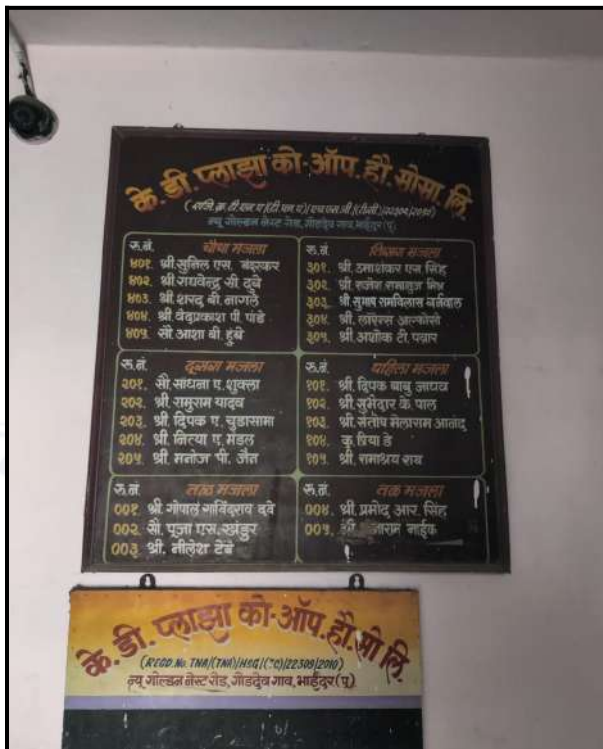 के. डी. प्लाझा को-ऑप. हौ. सोसा. लि.
न्यू गोल्डन नेस्ट रोड, गोडदेव गाव, भाईंदर (पू)
रु.नं. चौथा मजला
४०१. श्री. सुनिल एस. बंइरकर
४०२. श्री राघवेन्द्र सी. दुबे
४०३. श्री. शरद बी. नागले
४०४. श्री. वेदप्रकाश पी. पांडे
४०५. सौ. आशा बी. हुंबे
रु.नं. तिसरा मजला
३०१. श्री. उमाशंकर एस. सिंह
३०२. श्री. राजेश रामानुज मिश्र
३०३. श्री. सुभाष रामविलास बर्नवाल
३०४. श्री. लॉरेन्स आल्कोसो
३०५. श्री. अशोक टी. पवार
रु.नं. दुसरा मजला
२०१. सौ. साधना ए. शुक्ला
२०२. श्री. रामुराम यादव
२०३. श्री. दिपक ए. चुडासामा
२०४. श्री. नित्या ए. मंडल
२०५. श्री. मनोज पी. जैन
रु.नं. पहिला मजला
१०१. श्री. दिपक बाबु जाधव
१०२. श्री. सुभेदार के. पाल
१०३. श्री. संतोष मेलाराम आनंद
१०४. कु. प्रिया डे
१०५. श्री. रामाश्रय राय
रु.नं. तळ मजला
००१. श्री. गोपाल गोविंदराव दवे
००२. सौ. पूजा एस. खंडुर
००३. श्री. नीलेश टेंबे
रु.नं. तळ मजला
००४. श्री. प्रमोद आर. सिंह
००५. नाईक
के. डी. प्लाझा को-ऑप. हौ. सो. लि.
(REGD. No. TNA/(TNA)/HSG/(TC)/22309/2010)
न्यू गोल्डन नेस्ट रोड, गोडदेव गाव, भाईंदर (पू)